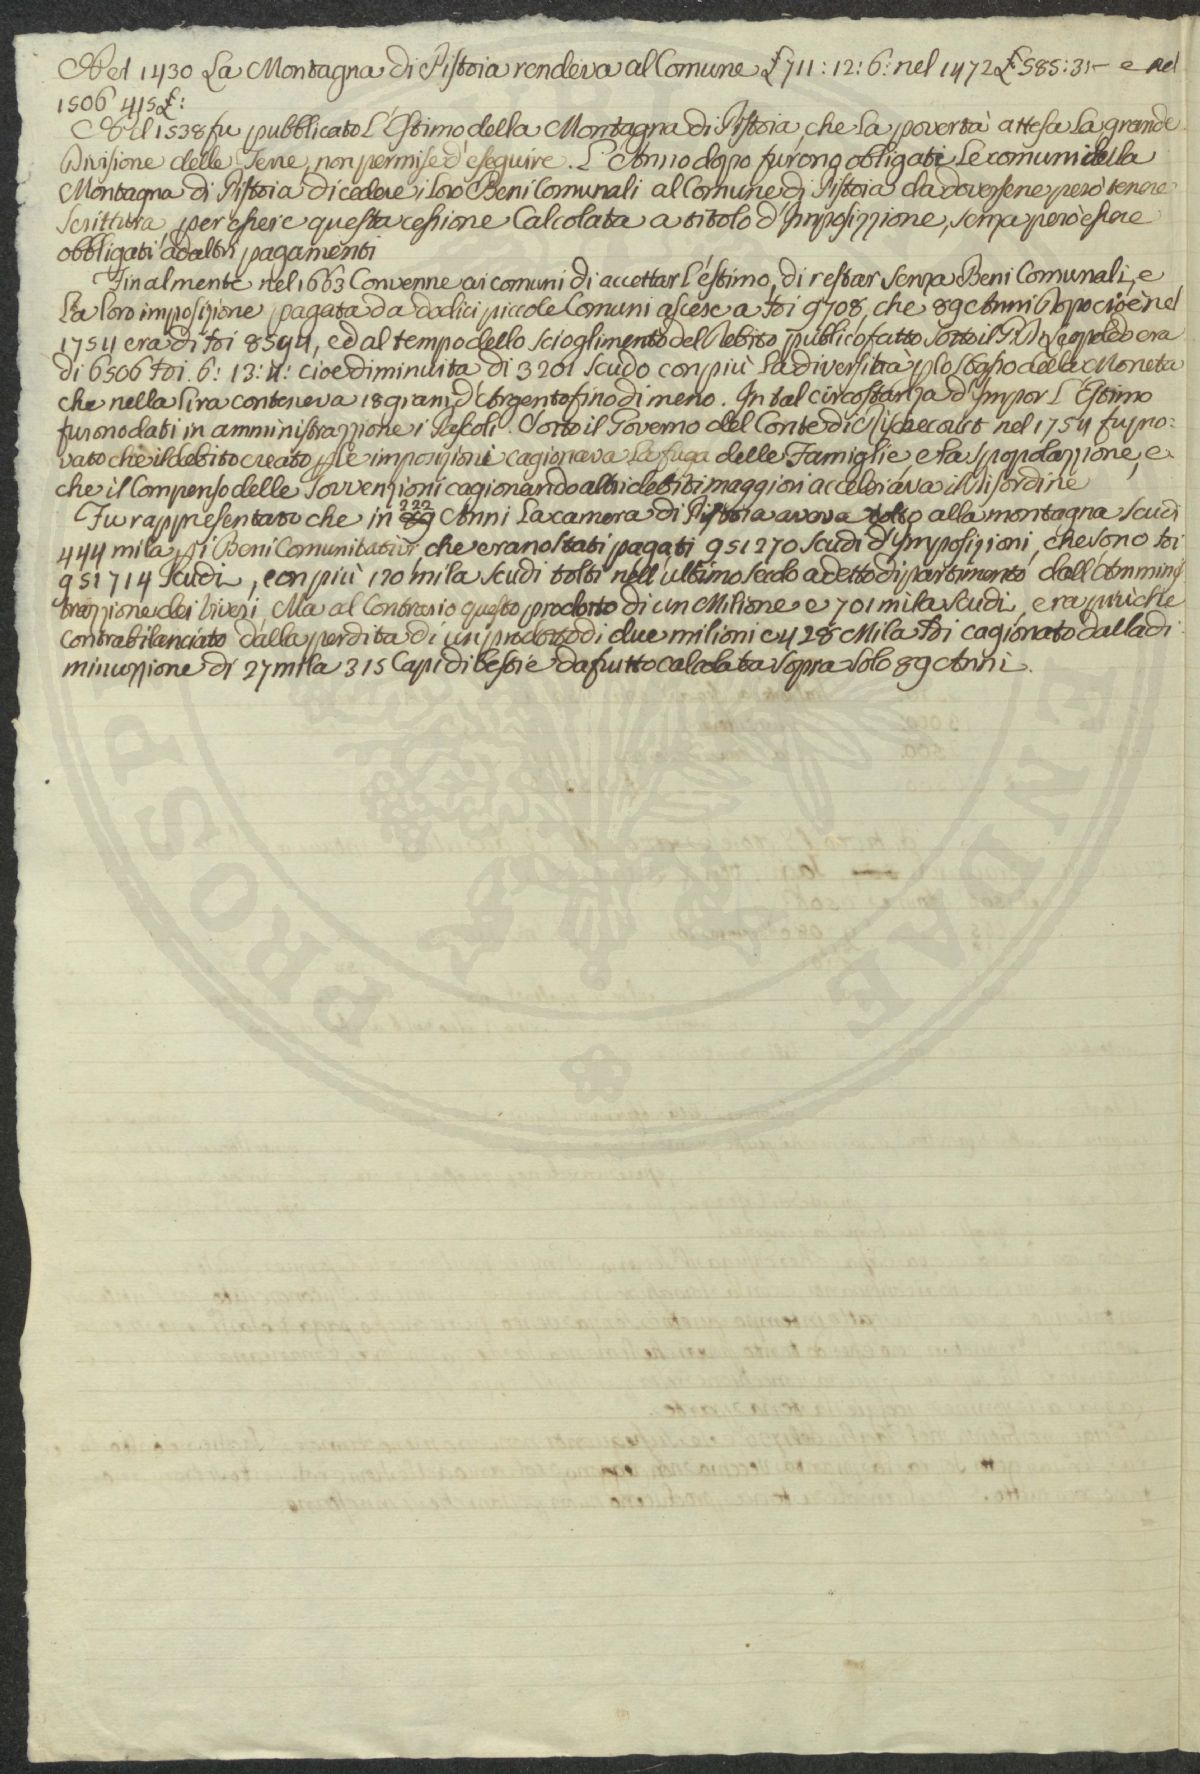 Nel 1430 La Montagna di Pistoia rendeva al Comune £ 711:12:6: nel 1472 £ 585:3:- e nel
1506 415£:
Nel 1538 fu pubblicato L'Estimo della Montagna di Pistoia, che La povertà attesa La grande
Divisione delle Terre, non permise d'eseguire. L'Anno dopo furono obligati Le comuni della
Montagna di Pistoia di cedere i loro Beni Comunali al Comune di Pistoia da doversene però tenere
Scrittura per essere questa cessione Calcolata a titolo d'Imposizzione, senza però essere
obbligati ad altri pagamenti
Finalmente nel 1663 Convenne ai comuni di accettar l'éstimo, di restar senza Beni Comunali, e
La loro imposizione pagata da dodici piccole Comuni ascese a di 9708, che 89 Anni Dopo cioè nel
1754 era di 8594, ed al tempo dello scioglimento del Debito publico fatto sotto il Leopoldo era
di 6506 6:13:4: cioè diminuita di 3201 Scudo con più La diversità p lo Sbaso della Moneta
che nella lira conteneva 18 grani d'Argento fino di meno. In tal circostanza d'Impor L'Estimo
furono dati in amministrazzione i Pascoli. Sotto il Governo del Conte di Richecourt nel 1754 fu pro:
vato che il debito creato p le imposizioni cagionava La fuga delle Famiglie e la Spopolazzione, e
che il Compenso delle Sovvenzioni cagionando altri debiti maggiori accelerava il Disordine
Fu rappresentato che in 222 89 Anni La camera di Pistoia aveva tolto alla montagna Scudi
444 mila p i Beni Comunitativi che erano stati pagati 951270 Scudi d'Imposizioni, che sono
951714 Scudi, e con più 120 mila scudi tolti nell'ultimo secolo a detto dipartimento dall'Ammini
trazzione dei viveri. Ma al Contrario questo prodotto di un Milione e 701 mila Scudi, era più che
Contrabilanciato dalla perdita di un prodotto di due milioni e 428 Mila cagionato dalla di
minuzzione di 27 mila 315 Capi di bestie da frutto calcolata sopra solo 89 Anni.